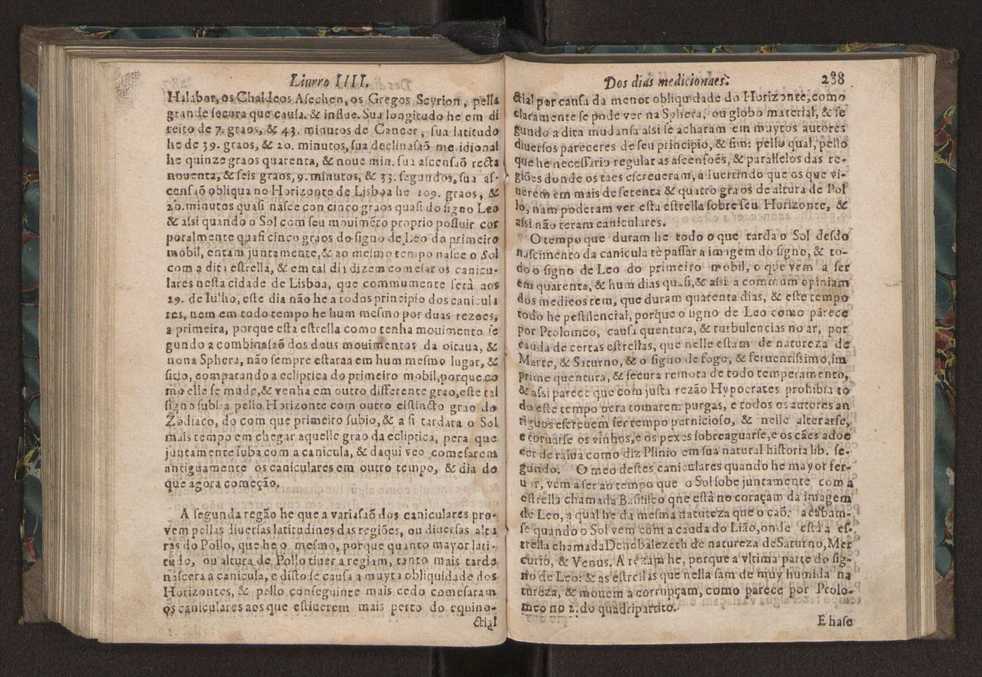 Liurro IIII.
Halabor, os Chaldeos Asechen, os Gregos Seyrion, pella
grande secura que causa. & influe. Sua longitudo he em di
reito de 7. graos, & 43. minutos de Cancer, sua latitudo
he de 39. graos, & 20. minutos, sua declinasaõ meridional
he quinze graos quarenta, & noue min. sua ascensaõ recta
nouenta, & seis graos, 9. minutos, & 33. segundos, sua as-
censiaõ obliqua no Horizonte de Lisboa he 109. graos, &
20. minutos quasi nasce con cinco graos quasi do signo Leo
& assi quando o Sol com seu mouimẽto proprio possuir cor
poralmente quasi cinco graos do signo de Leo do primeiro
mobil, entam juntamente, & ao mesmo tempo nasce o Sol
com a dita estrella, & em tal dia dizem comesar os canicu-
lares nesta cidade de Lisboa, que commumente será aos
29. de Iulho, este dia não he a todos principio dos canicula
res, nem em todo tempo he hum mesmo por duas rezoẽs,
a primeira, porque esta estrella como tenha mouimento se
gundo a combinasaõ dos dous mouimentos da oitaua, &
nona Sphera, não sempre estaraa em hum mesmo lugar, &
sitio, comparando a ecliptica do primeiro mobil, porque co
mo elle se mude, & venha em outro differente grao, este tal
signo subira pello Horizonte com outro distincto grao do
Zodiaco, do com que primeiro subio, & assi tardara o Sol
mais tempo em chegar aquelle grao da ecliptica, pera que
juntamente suba com a canicula, & daqui veo comesarem
antiguamente os caniculares em outro tempo, & dia do
que agora começão.
A segunda regão he que a variasaõ dos caniculares pro-
vem pellas diuersas latitudines das regiões, ou diuersas altu
ras do Pollo, que he o mesmo, porque quanto mayor lati-
tudo, ou altura de Pollo tiuer a regiam, tanto mais tarde
nascera a canicula, e disto se causa a muyta obliquidade dos
Horizontes, & pello conseguinte mais cedo comesaram
os caniculares aos que estiuerem mais perto do equino-
ctial
Dos dias medicionaes. 288
ctial por causa da menor obliquidade do Horizonte, como
claramente se pode ver na Sphera, ou globo material, & se
gundo a dita mudansa assi se acharam em muytos autores
diuersos pareceres de seu principio, & fim: pello qual, pello
que he necessario regular as ascensoẽs, & parallelos das re-
giões donde os taes escreueram, aduertindo que os que vi-
uerem em mais de setenta & quatro graos de altura de Pol
lo, nam poderam ver esta estrella sobre seu Horizonte, &
assi não teram caniculares.
O tempo que duram he todo o que tarda o Sol desdo
nascimento da canicula tè passar a imagem do signo, & to-
do o signo de Leo do primeiro mobil, o que vem a ser
em quarenta, & hum dias quasi, & assi a commum opiniam
dos medicos tem, que duram quarenta dias, & este tempo
todo he pestilencial, porque o signo de Leo como parece
por Ptolomeo, causa quentura, & turbulencias no ar, por
causa de certas estrellas, que nelle estam de natureza de
Marte, & Saturno, & o signo de fogo, & feruentissimo, im
prime quentura, & secura remota de todo temperamento,
& assi parece que com justa rezão Hypocrates prohibia to
do este tempo pera tomarem purgas, e todos os autores an
tiguos escreuem ser tempo pernicioso, & nelle alterarse,
e toruarse os vinhos, e os pexes sobreaguarse, e os cães adoe
cer de raiua como diz Plinio em sua natural historia lib. se-
gundo. O meo destes caniculares quando he mayor fer-
uor, vem a ser ao tempo que o Sol sobe juntamente com a
estrella chamada Basilico que està no coraçam da imagem
de Leo, a qual he da mesma natureza que o caõ: acabam-
se quando o Sol vem com a cauda do Lião, onde està a es-
trella chamada Denebalezeth de natureza de Saturno, Mer
curio, & Venus. A rezam he, porque a vltima parte do sig-
no de Leo: & as estrellas que nella sam de muy humida na
tureza, & mouem a corrupçam, como parece por Ptolo-
meo no 2. do quadripartito.
E hase